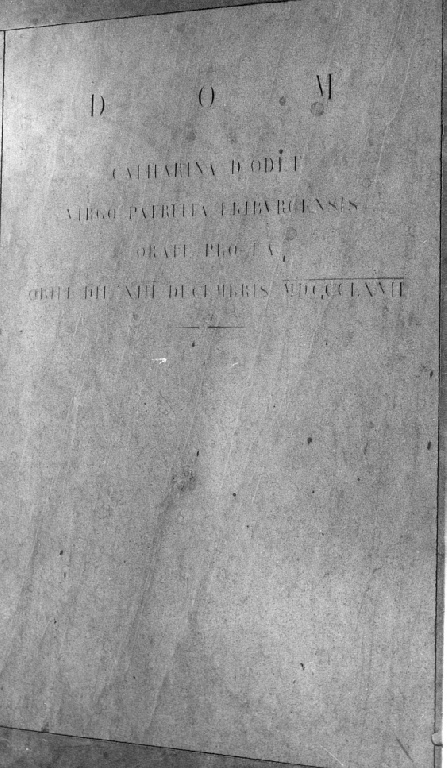 D O M
CATHARINA D'ODET
VIRGO PATRITIA FRIBVRGENSIS
ORATE PRO EA
OBIIT DIE XIII DECEMBRIS MDCCCLXXII